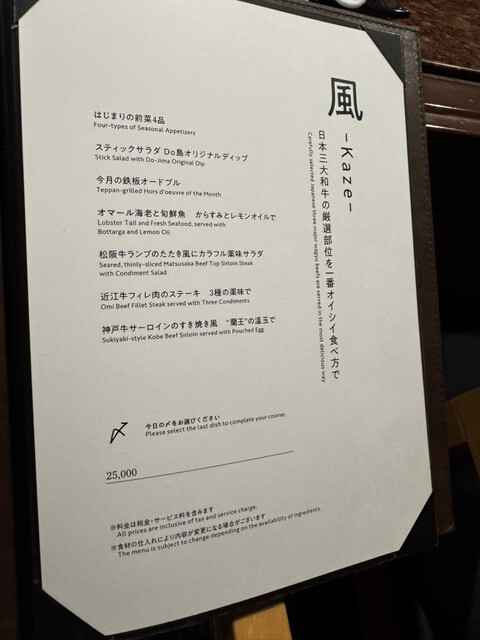 風
-Kaze-
日本三大和牛の厳選部位を一番オイシイ食べ方で
Carefully selected Japanese three major wagyu beefs are served in the most delicious way
はじまりの前菜4品
Four-types of Seasonal Appetizers
スティックサラダ Do島オリジナルディップ
Stick Salad with Do-Jima Original Dip
今月の鉄板オードブル
Teppan-grilled Hors d'oeuvre of the Month
オマール海老と旬鮮魚 からすみとレモンオイルで
Lobster Tail and Fresh Seafood, served with
Bottarga and Lemon Oli
松阪牛ランプのたたき風にカラフル薬味サラダ
Seared, thinly-sliced Matsusaka Beef Top Sirloin Steak
with Condiment Salad
近江牛フィレ肉のステーキ 3種の薬味で
Omi Beef Fillet Steak served with Three Condiments
神戸牛サーロインのすき焼き風 “蘭王”の温玉で
Sukiyaki-style Kobe Beef Sirloin served with Pouched Egg
〆
今日の〆をお選びください
Please select the last dish to complete your course.
25,000
※料金は税金・サービス料を含みます
All prices are inclusive of tax and service charge.
※食材の仕入れにより内容が変更になる場合がございます
The menu is subject to change depending on the availability of ingredients.